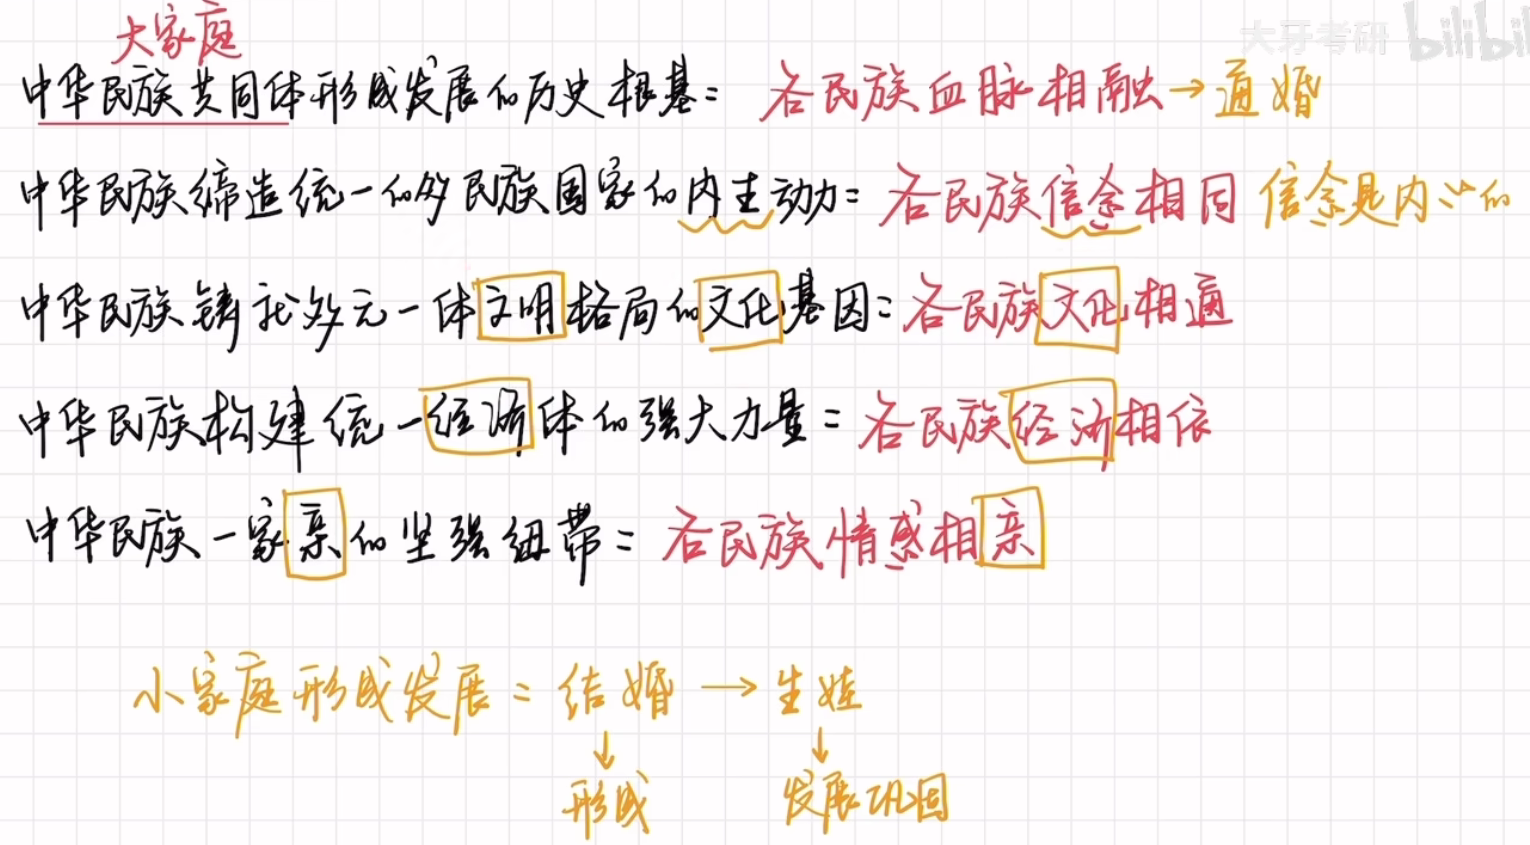 大家庭
大牙考研 bilibil
中华民族共同体形成发展的历史根基= 各民族血脉相融→通婚
中华民族缔造统一的多民族国家的内生动力= 各民族信念相同 信念是内心的
中华民族铸就多元一体文明格局的文化基因= 各民族文化相通
中华民族构建统一经济体的强大力量= 各民族经济相依
中华民族一家亲的坚强纽带= 各民族情感相亲
小家庭形成发展=结婚→生娃
↓ ↓
形成 发展巩固